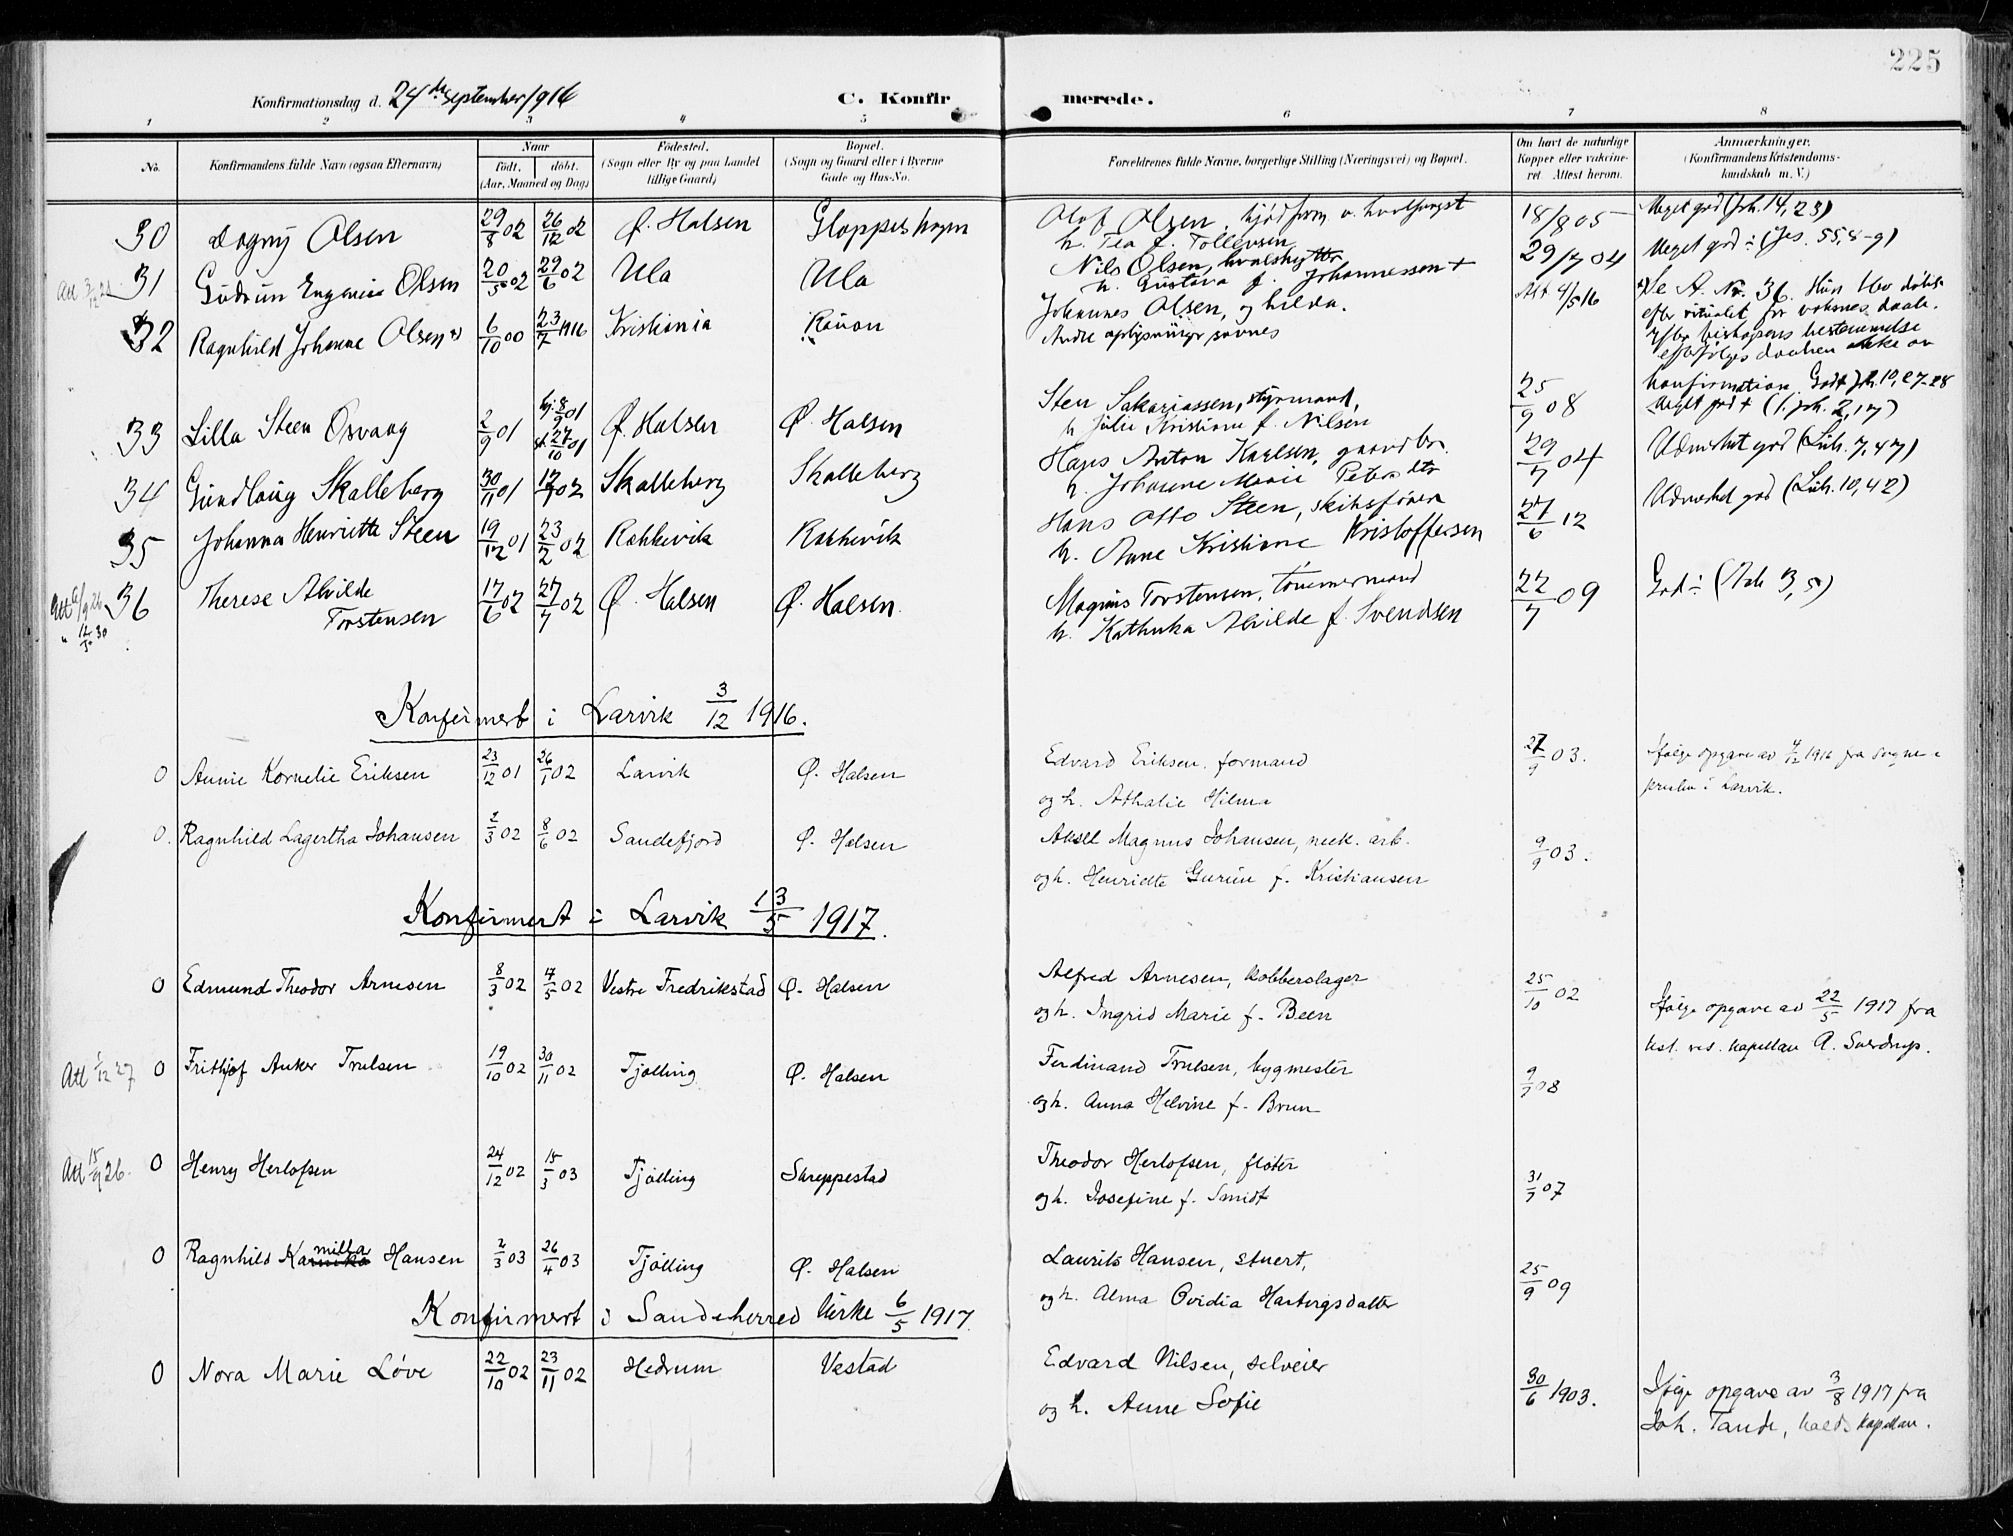 225
Konfirmationsdag d. 24de september 1916 C. Konfirmerede.
1 2 3 4 5 6 7 8
No. Konfirmandens fulde Navn (ogsaa Efternavn) Naar født, døbt. (Aar, Maaned og Dag) Fødested. (Sogn eller By og paa Landet tillige Gaard) Bopæl. (Sogn og Gaard eller i Byerne Gade og Hus-No. Forældrenes fulde Navne, borgerlige Stilling (Næringsvei) og Bopæl. Om havt de naturlige Kopper eller vaccineret. Attest herom. Anmærkninger. (Konfirmandens Kristendomskundskab m. V.)
30 Dagny Olsen 29/8 02 26/12 02 Ø. Halsen Gloppeshagen Olaf Olsen, 18/8 05 Meget god (Joh. 14, 23)
h. Tea f. Tollevsen
31 Gudrun Engenia Olsen 20/5 02 29/6 02 Ula Ula Nils Olsen, hvalskytter 29/7 04 Meget god ÷ (Jes. 55, 8-9)
h. Gustava f. Johannessen +
32 Ragnhild Johanne Olsen x) 6/10 00 23/7 1916 Kristiania Rauan Johannes Olsen, og Hilda. Att 4/5 16 x) Se A. Nr. 36. Hun blev døbt
Andre oplysninger savnes efter ritualet for voksnes daab.
Efter biskopens bestemmelse
efterfølges daaben ikke av
konfirmation. Godt Joh. 10, 27-28
33 Lilla Steen Osvaag 2/9 01 hj. 8/9 01 st 27/10 01 Ø. Halsen Ø. Halsen Sten Sakariassen, styrmand, 25/9 08 Meget god + (1. Joh. 2, 17)
h. Julie Kristiane f. Nilsen
34 Gundlaug Skalleberg 30/11 01 17/7 02 Skalleberg Skalleberg Hans Anton Karlsen, gaardbr. 29/7 04 Udmerket god (Luk. 7, 47)
h. Johanne Marie Petersdtr
35 Johanna Henriette Steen 19/12 01 23/2 02 Rakkevik Rakkevik Hans Otto Steen, skibsfører 27/6 12 Udmerket god (Luk. 10, 42)
h. Anne Kristiane Kristoffersen
Att 6/9 26 36 Therese Alvilde Torstensen 17/6 02 27/7 02 Ø. Halsen Ø. Halsen. Magnus Torstensen, tømmermand 22/7 09 God ÷ (Aab 3, 5)
" 12/5 30 h. Kathinka Alvilde f. Svendsen
Konfirmert i Larvik 3/12 1916.
0 Annie Kornelie Eriksen 23/12 01 26/1 02 Larvik Ø. Halsen Edvard Eriksen, formand 27/9 03. Ifølge opgave av 4/12 1916 fra sogne-
og h. Athalie Hilma presten i Larvik.
0. Ragnhild Lagertha Johansen 2/3 02 8/6 02 Sandefjord Ø. Halsen Aksel Magnus Johansen, mek. arb. 9/9 03.
og h. Henriette Gurine f. Kristiansen
Konfirmert i Larvik 13/5 1917.
0 Edmund Theodor Arnesen 8/3 02 4/5 02 Vestre Fredrikstad Ø. Halsen Alfred Arnesen, kobberslager 25/10 02 Ifølge opgave av 22/5 1917 fra
og h. Ingrid Marie f. Been kst. res. kapellan A. Sverdrup.
Att 1/12 27 0 Frithjof Anker Trulsen 19/10 02 30/11 02 Tjølling Ø. Halsen Ferdinand Trulsen, bygmester 9/7 08
og h. Anna Helvine f. Brun
Att 15/9 26. 0 Henry Herlofsen 24/12 02 15/3 03 Tjølling Skreppestad Theodor Herlofsen, fløter 31/7 07
og h. Josefine f. Smidt
0 Ragnhild Kamilla Hansen 2/3 03 26/4 03 Tjølling Ø. Halsen Laurits Hansen, stuert, 25/9 09
og h. Alma Ovidia Hartvigsdatter
Konfirmert i Sandeherred kirke 6/5 1917.
0 Nora Marie Løve 22/10 02 23/11 02 Hedrum Vestad Edvard Nilsen, selveier 30/6 1903. Ifølge opgave av 3/8 1917 fra
og h. Anne Sofie Joh. Tande, kapellan.